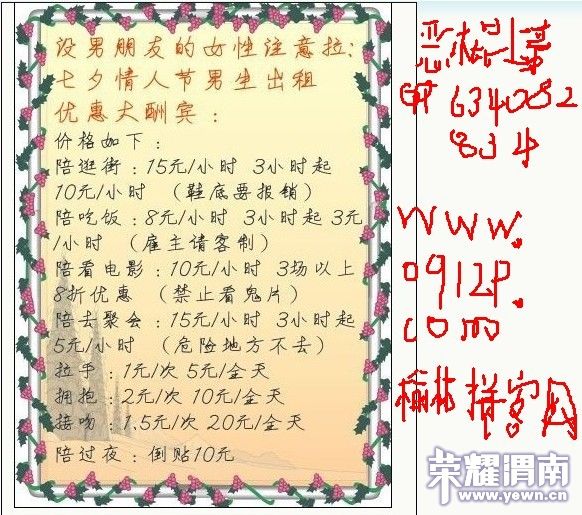 没男朋友的女性注意拉:
七夕情人节男生出租
优惠大酬宾:
价格如下:
陪逛街:15元/小时 3小时起
10元/小时 (鞋底要报销)
陪吃饭:8元/小时 3小时起 3元
/小时 (雇主请客制)
陪看电影:10元/小时 3场以上
8折优惠 (禁止看鬼片)
陪去聚会:15元/小时 3小时起
5元/小时 (危险地方不去)
拉手:1元/次 5元/全天
拥抱:2元/次 10元/全天
接吻:1.5元/次 20元/全天
陪过夜:倒贴10元
恶搞
834
www.
0912P.
com
榆林拼客网
荣耀渭南
www.yewn.cn